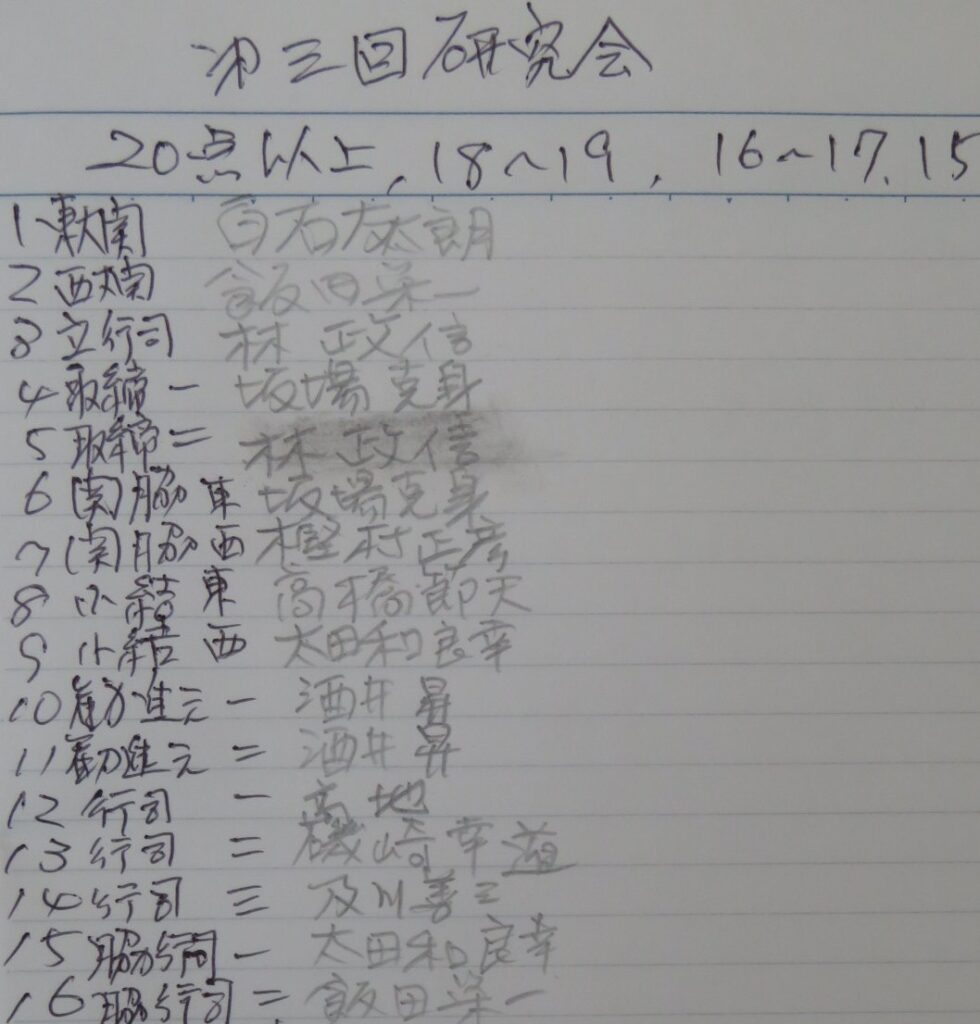 第三回研究会
20点以上, 18~19, 16~17, 15
1 東大関 白石友太朗
2 西大関 飯田栄一
3 立行司 林 政信
4 取締一 坂場克身
5 取締二 林 政信
6 (関)脇 東 坂場克身
7 (関)脇 西 樫村正彦
8 小結 東 高橋節夫
9 小結 西 太田和良幸
10 勧進元一 酒井昇
11 勧進元二 酒井昇
12 行司 一 高地
13 行司 二 磯崎幸道
14 行司 三 及川善三
15 脇行司一 太田和良幸
16 脇行司二 飯田栄一